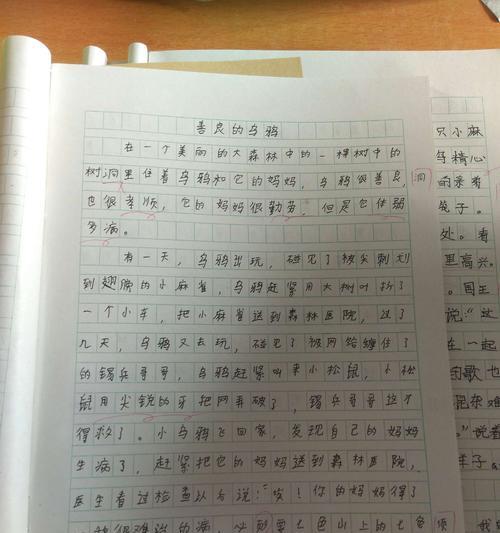 善良的乌鸦
在一个美丽的大森林中的一棵树中的
树洞里住着乌鸦和它的妈妈，乌鸦很善良，
洞
也很孝顺，它的妈妈很勤劳，但是它体弱
多病。
有一天，乌鸦出玩，碰见了被尖刺划
到翅膀的小麻雀，乌鸦赶紧用大树叶折了
一个小车，把小麻雀送到森林医院，过了
几天，乌鸦又去玩，碰见了被网给缠住了
的锡兵哥哥，乌鸦赶紧叫来小松鼠，小松
鼠用尖锐的牙把网弄破了，锡兵哥哥这才
得救了。小乌鸦飞回家，发现自己的妈妈
生病了，赶紧把它的妈妈送到森林医院，
医生看过检查以后说：“唉！你的妈妈得了
只小麻
精心
亲看
兔子。
处。看
里高兴。
。国王
说：“这
在一起
歌也
杂难
。”说着
羊子。